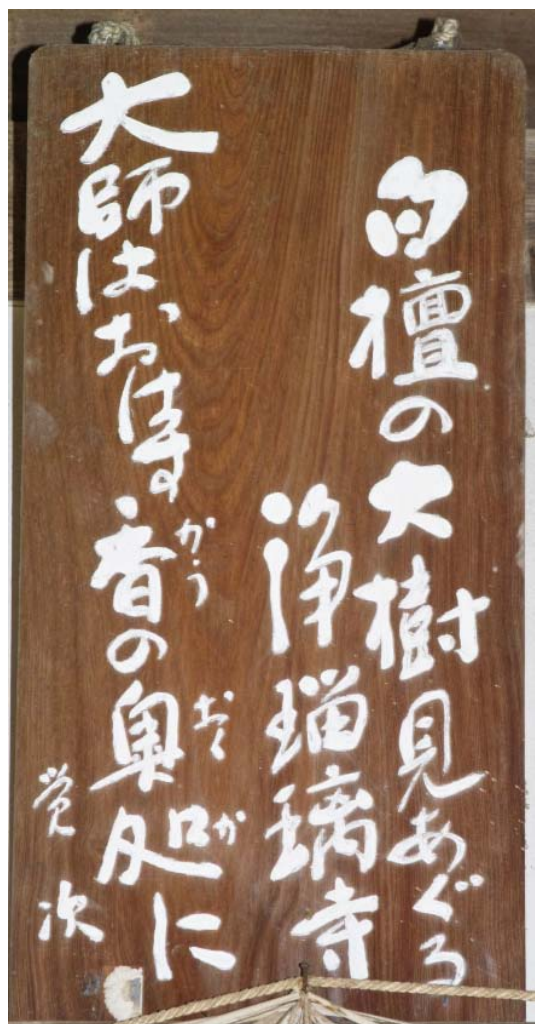 白檀の大樹見あぐる
浄瑠璃寺
大師はおはす香の奥処に
かう おくか
覚次